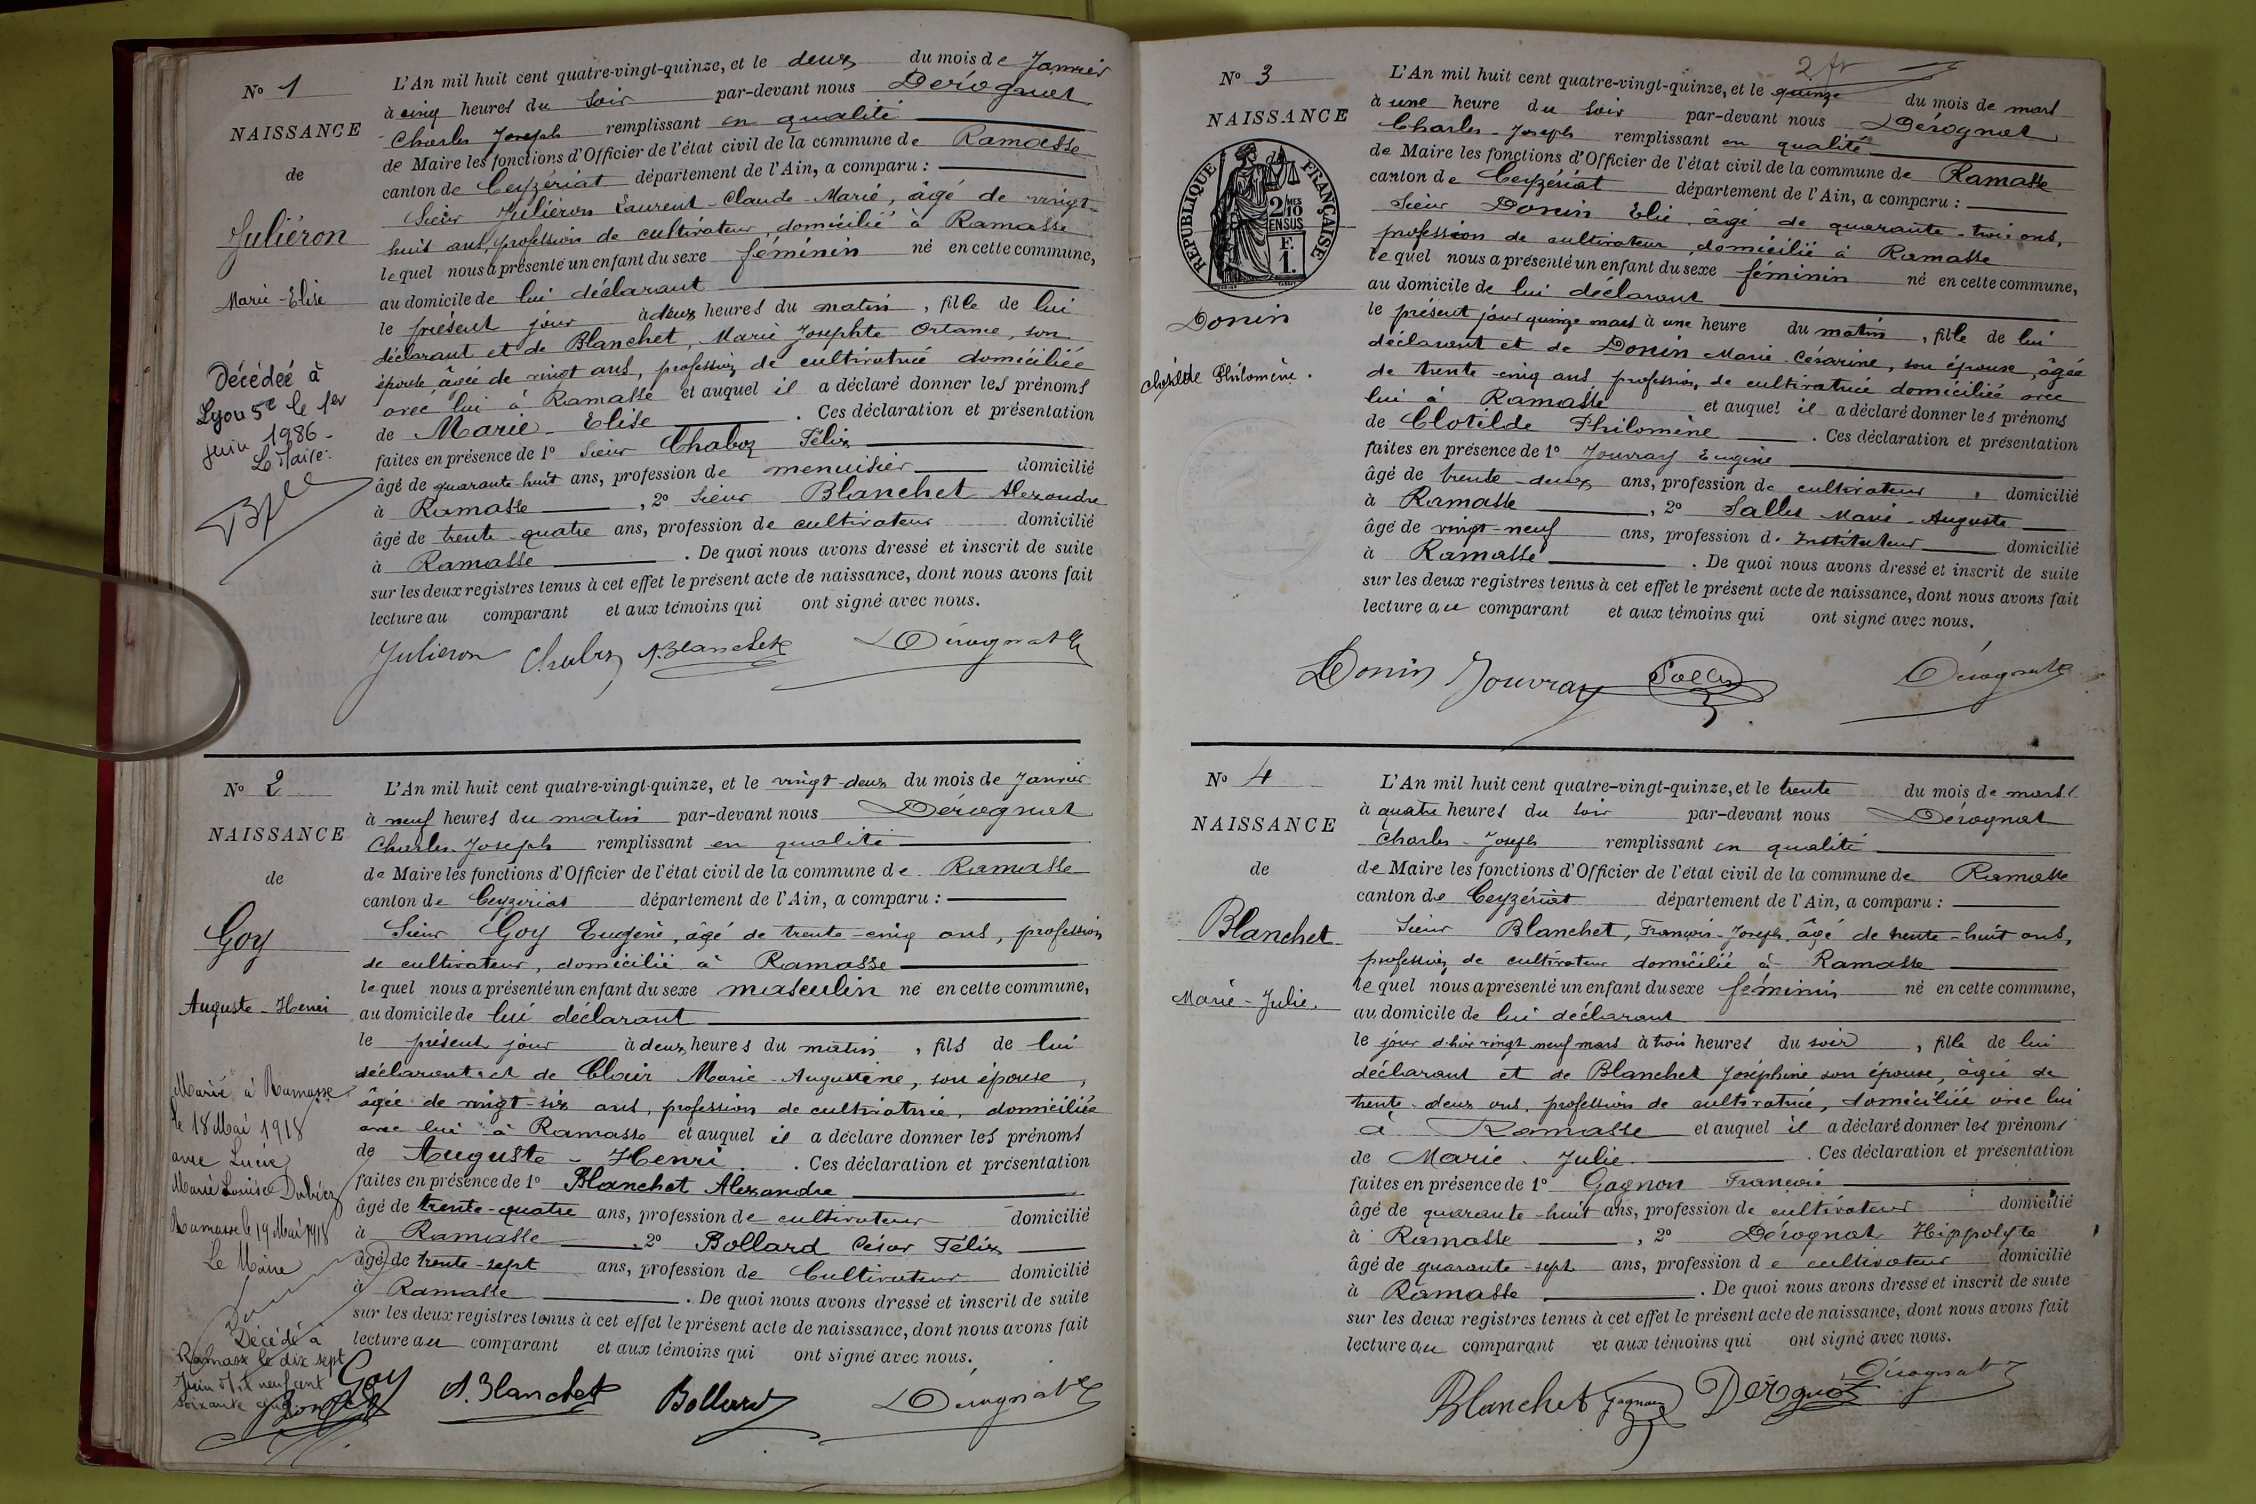 N° 1
NAISSANCE
de
Juliéron
Marie-Elise
Décédée à
Lyon 5e le 1er
juin 1986-
Le Maire:
L'An mil huit cent quatre-vingt-quinze, et le deux du mois de Janvier
à cinq heures du soir par-devant nous Dérognat
Charles Joseph remplissant en qualité
de Maire les fonctions d'Officier de l'état civil de la commune de Ramasse
canton de Ceyzériat département de l'Ain, a comparu :
Sieur Juliéron Laurent-Claude-Marie, âgé de vingt-
huit ans, profession de cultivateur, domicilié à Ramasse
lequel nous a présenté un enfant du sexe féminin né en cette commune,
au domicile de lui déclarant
le présent jour à deux heures du matin, fille de lui
déclarant et de Blanchet, Marie Josephte Octavie, son
épouse âgée de vingt ans, profession de cultivatrice domiciliée
avec lui à Ramasse et auquel il a déclaré donner les prénoms
de Marie-Elise. Ces déclaration et présentation
faites en présence de 1° Sieur Chaboz Félix
âgé de quarante-huit ans, profession de menuisier domicilié
à Ramasse, 2° Sieur Blanchet Alexandre
âgé de trente-quatre ans, profession de cultivateur domicilié
à Ramasse. De quoi nous avons dressé et inscrit de suite
sur les deux registres tenus à cet effet le présent acte de naissance, dont nous avons fait
lecture au comparant et aux témoins qui ont signé avec nous.
Julieron Chaboz A. Blanchet Dérognat
N° 2
NAISSANCE
de
Goy
Auguste-Henri
Marié à Ramasse
le 18 Mai 1918
avec Lucie
Marie Louise
Ramasse le 19 Mai 1918
Le Maire
Décédé à
Ramasse le dix sept
Juin mil neuf cent
soixante cinq
L'An mil huit cent quatre-vingt-quinze, et le vingt-deux du mois de Janvier
à neuf heures du matin par-devant nous Dérognat
Charles-Joseph remplissant en qualité
de Maire les fonctions d'Officier de l'état civil de la commune de Ramasse
canton de Ceyzériat département de l'Ain, a comparu :
Sieur Goy Eugène, âgé de trente-cinq ans, profession
de cultivateur, domicilié à Ramasse
lequel nous a présenté un enfant du sexe masculin né en cette commune,
au domicile de lui déclarant
le présent jour à deux heures du matin, fils de lui
déclarant et de Clair Marie-Augustine, son épouse,
âgée de vingt-six ans, profession de cultivatrice, domiciliée
avec lui à Ramasse et auquel il a déclaré donner les prénoms
de Auguste-Henri. Ces déclaration et présentation
faites en présence de 1° Blanchet Alexandre
âgé de trente-quatre ans, profession de cultivateur domicilié
à Ramasse, 2° Bollard César Félix
âgé de trente-sept ans, profession de Cultivateur domicilié
à Ramasse. De quoi nous avons dressé et inscrit de suite
sur les deux registres tenus à cet effet le présent acte de naissance, dont nous avons fait
lecture au comparant et aux témoins qui ont signé avec nous.
Goy A. Blanchet Bollard Dérognat
2 fr
N° 3
NAISSANCE
de
RÉPUBLIQUE FRANÇAISE
2 MES
10
EN SUS
F.
1.
Donin
Clotilde Philomène.
L'An mil huit cent quatre-vingt-quinze, et le quinze du mois de mars
à une heure du soir par-devant nous Dérognat
Charles-Joseph remplissant en qualité
de Maire les fonctions d'Officier de l'état civil de la commune de Ramasse
canton de Ceyzériat département de l'Ain, a comparu :
Sieur Donin Elie, âgé de quarante-trois ans,
profession de cultivateur, domicilié à Ramasse
lequel nous a présenté un enfant du sexe féminin né en cette commune,
au domicile de lui déclarant
le présent jour quinze mars à une heure du matin, fille de lui
déclarant et de Donin Marie-Césarine, son épouse, âgée
de trente-cinq ans, profession de cultivatrice domiciliée avec
lui à Ramasse et auquel il a déclaré donner les prénoms
de Clotilde Philomène. Ces déclaration et présentation
faites en présence de 1° Jouvray Eugène
âgé de trente-deux ans, profession de cultivateur, domicilié
à Ramasse, 2° Salles Marie-Auguste
âgé de vingt-neuf ans, profession d. Instituteur domicilié
à Ramasse. De quoi nous avons dressé et inscrit de suite
sur les deux registres tenus à cet effet le présent acte de naissance, dont nous avons fait
lecture au comparant et aux témoins qui ont signé avec nous.
Donin Jouvray Salles Dérognat
N° 4
NAISSANCE
de
Blanchet
Marie-Julie.
L'An mil huit cent quatre-vingt-quinze, et le trente du mois de mars
à quatre heures du soir par-devant nous Dérognat
Charles-Joseph remplissant en qualité
de Maire les fonctions d'Officier de l'état civil de la commune de Ramasse
canton de Ceyzériat département de l'Ain, a comparu :
Sieur Blanchet, François-Joseph, âgé de trente-huit ans,
profession de cultivateur domicilié à Ramasse
lequel nous a présenté un enfant du sexe féminin né en cette commune,
au domicile de lui déclarant
le jour d'hier vingt neuf mars à trois heures du soir, fille de lui
déclarant et de Blanchet Joséphine son épouse, âgée de
trente-deux ans, profession de cultivatrice, domiciliée avec lui
à Ramasse et auquel il a déclaré donner les prénoms
de Marie-Julie. Ces déclaration et présentation
faites en présence de 1° Gagnon François
âgé de quarante-huit ans, profession de cultivateur domicilié
à Ramasse, 2° Dérognat Hippolyte
âgé de quarante-sept ans, profession de cultivateur domicilié
à Ramasse. De quoi nous avons dressé et inscrit de suite
sur les deux registres tenus à cet effet le présent acte de naissance, dont nous avons fait
lecture au comparant et aux témoins qui ont signé avec nous.
Blanchet Gagnon Dérognat Dérognat